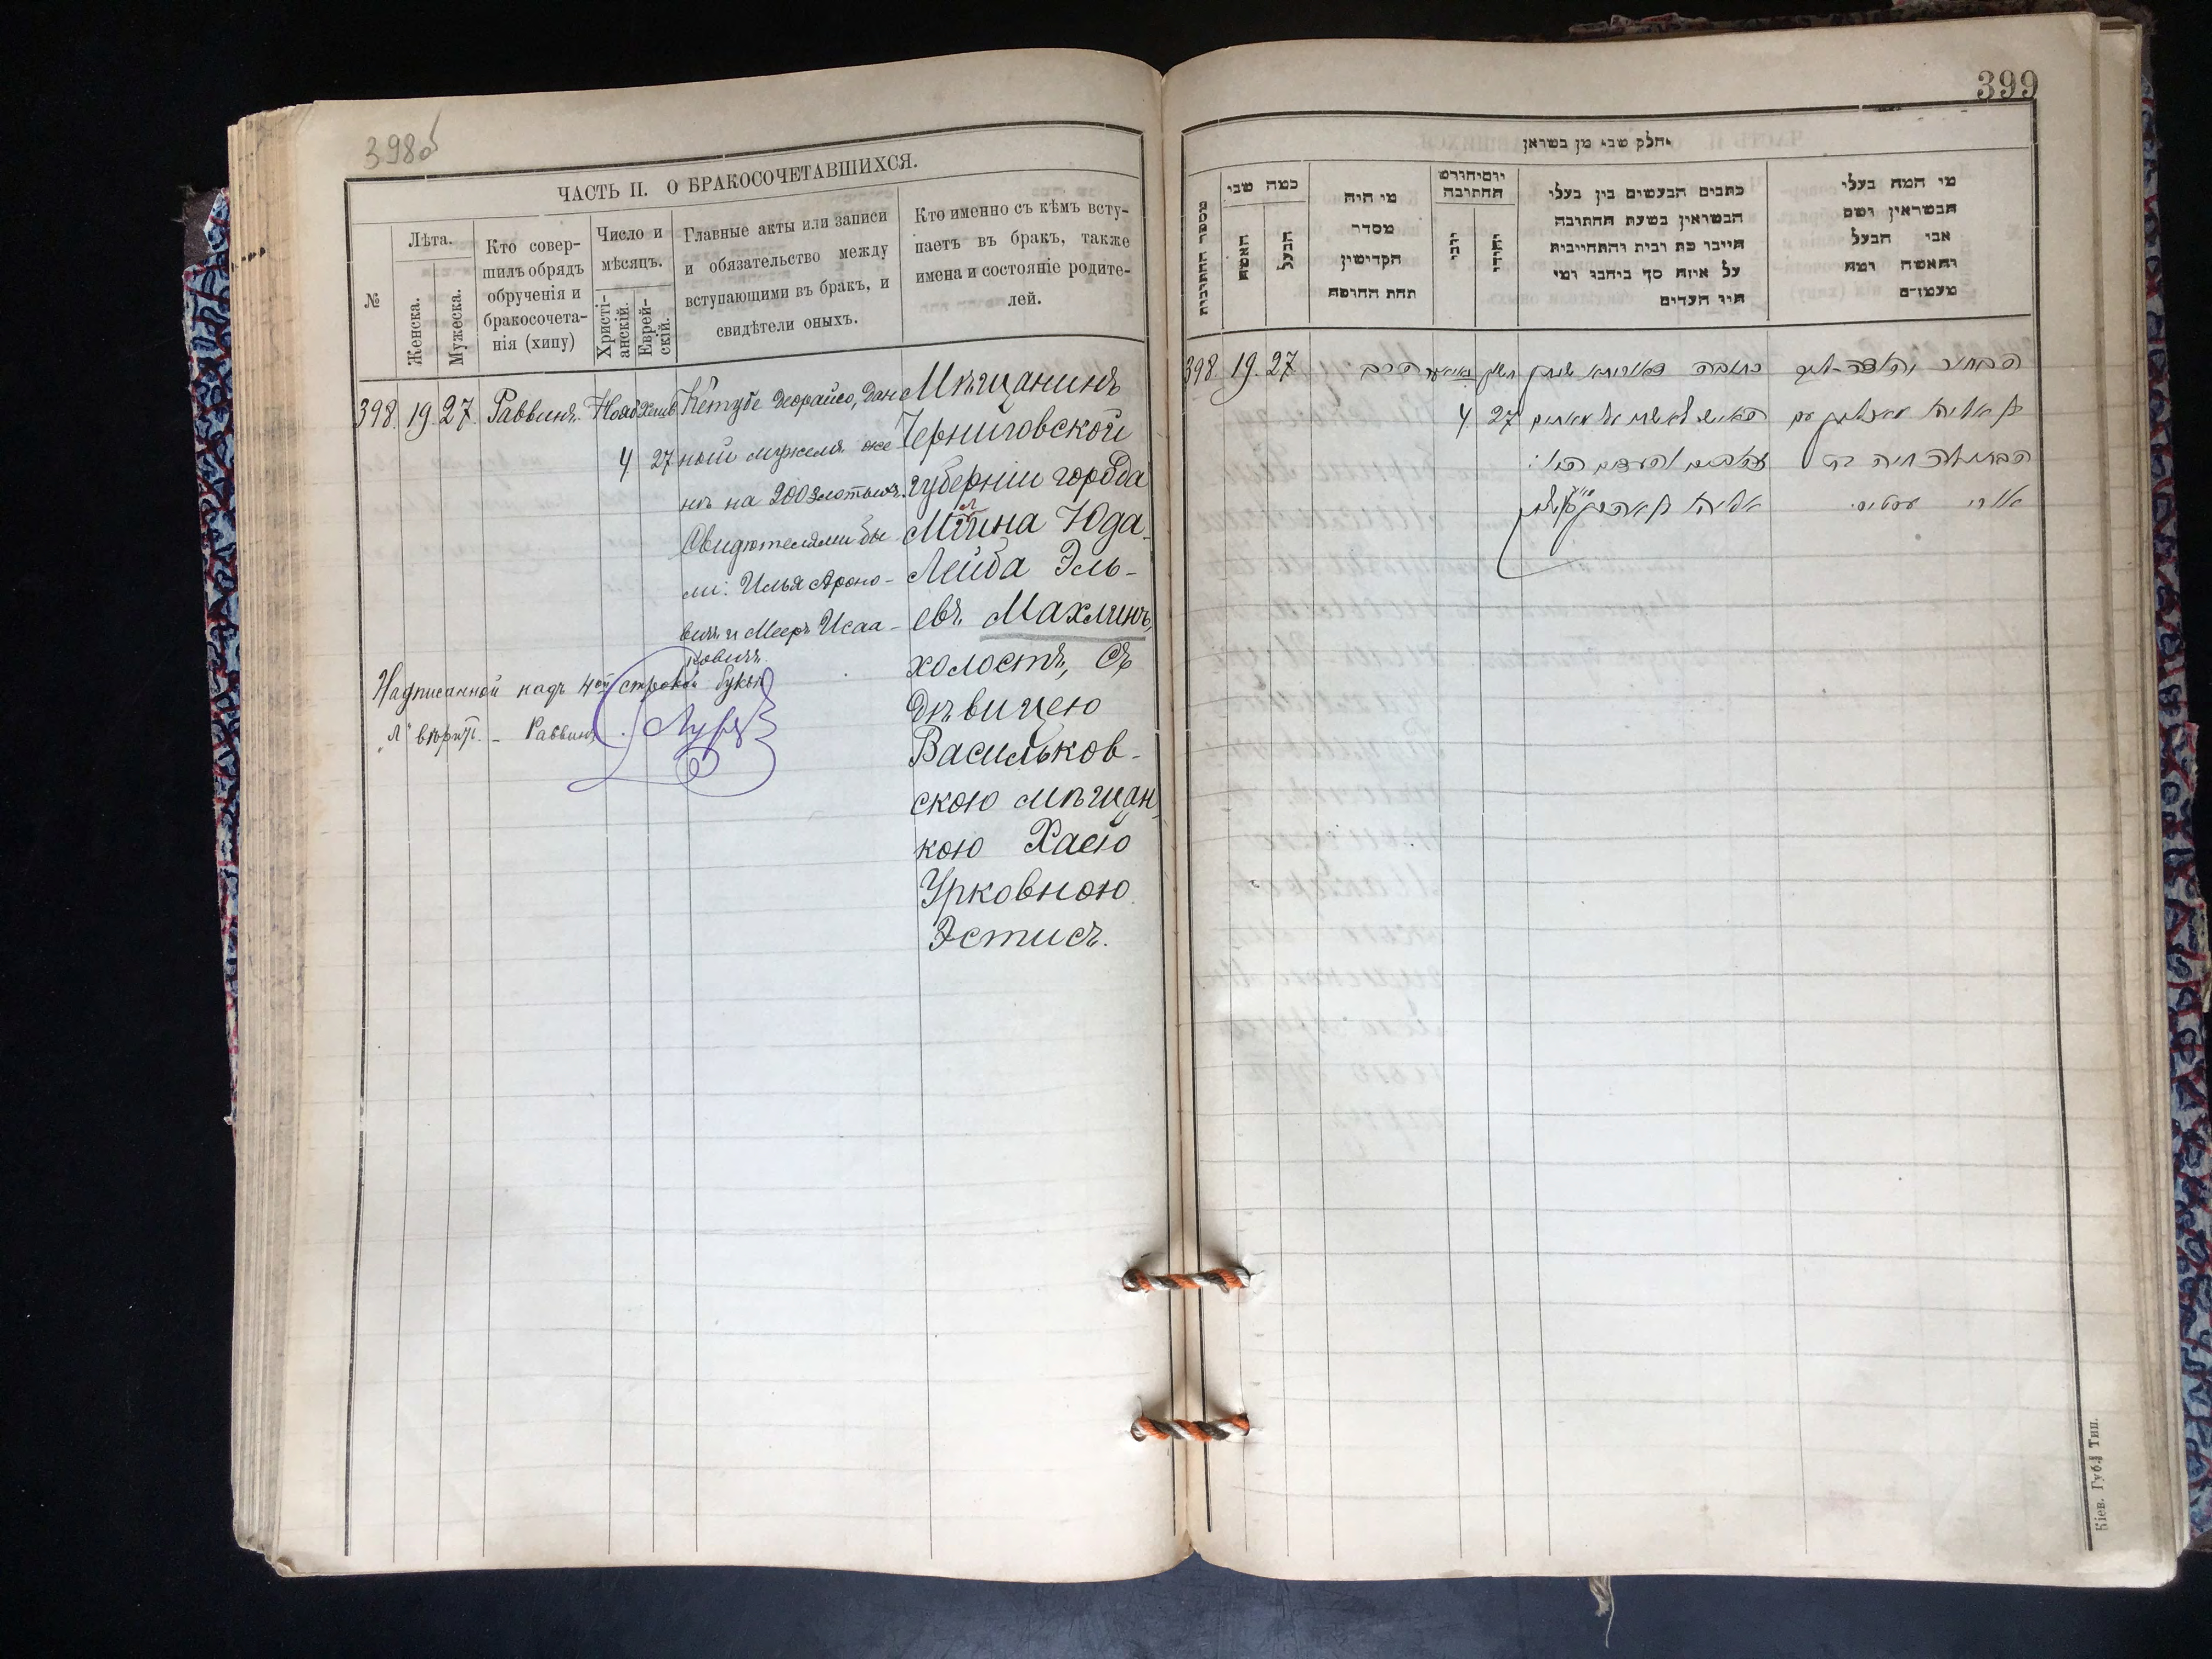 398об
ЧАСТЬ II. О БРАКОСОЧЕТАВШИХСЯ.
№
Лѣта.
Женска.
Мужеска.
Кто совер-
шилъ обрядъ
обрученія и
бракосочета-
нія (хипу)
Число и
мѣсяцъ.
Христі-
анскій.
Еврей-
скій.
Главные акты или записи
и обязательство между
вступающими въ бракъ, и
свидѣтели оныхъ.
Кто именно съ кѣмъ всту-
паетъ въ бракъ, также
имена и состояніе родите-
лей.
398. 19. 27. Раввинъ. Нояб Хешв
4 27
Кетубе деорайсо, дан
ной мужемъ же
нѣ на 200 злотыхъ.
Свидѣтелями бы
ли: Илья Ароно-
вичъ и Мееръ Исаа-
ковичъ.
Мѣщанинъ
Черниговской
губерніи города
Мглина Юда-
Лейба Эль-
евъ Махлинъ,
холостъ, съ
дѣвицею
Васильков-
скою мѣщан
кою Хаею
Урковною
Эстисъ.
Надписанной надъ 4ой строкой буквѣ
„Л" вѣрить. – Раввинъ
399
וחלק שני מן
מספר
כמה שני
האשה
הבעל
מי היה
מסדר
הקדושין
תחת החופה
יום וחודש
החתונה
יהודי
כתבים הנעשים בין בעלי
הנשואין בשעת החתונה
על איזה סך
היו העדים
מי המה בעלי
הנשואין ושם
אבי הבעל
והאשה ומה
מעמדם
398 19. 27 הרב
4 27
כתובה דאורייתא
הבחור יהודה ליב
הבתולה חיה בת
אורי
Кіев. Губ. Тип.